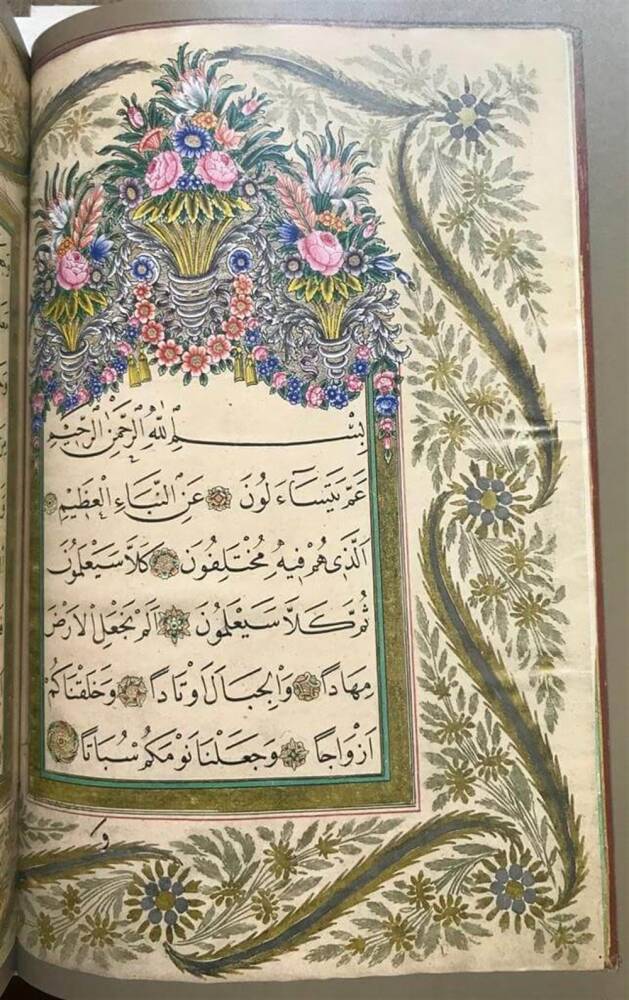 بِسْمِ اللّٰهِ الرَّحْمٰنِ الرَّحِيمِ
عَمَّ يَتَسَاءَلُونَ عَنِ النَّبَاءِ الْعَظِيمِ
الَّذِى هُمْ فِيهِ مُخْتَلِفُونَ كَلَّا سَيَعْلَمُونَ
ثُمَّ كَلَّا سَيَعْلَمُونَ اَلَمْ نَجْعَلِ الْاَرْضَ
مِهَادًا وَالْجِبَالَ اَوْتَادًا وَخَلَقْنَاكُمْ
اَزْوَاجًا وَجَعَلْنَا نَوْمَكُمْ سُبَاتًا
و